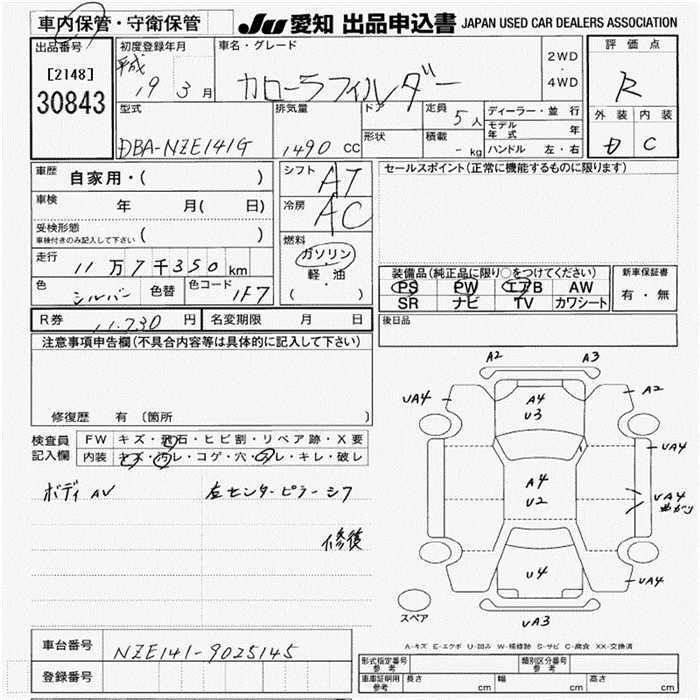 車内保管・守衛保管
JU 愛知 出品申込書 JAPAN USED CAR DEALERS ASSOCIATION
出品番号
[2148]
30843
初度登録年月
平成 19 3月
車名・グレード
カローラフィルダー
2WD
・
4WD
評価点
R
外装 内装
D C
型式
DBA-NZE141G
排気量
1490 CC
ドア
形状
定員 5人
積載 - kg
ディーラー・並行
モデル年式 年
ハンドル 左・右
車歴 自家用・( )
車検 年 月( 日)
受検形態
車検付きのみ記入して下さい ( )
走行 11万7千350km
色 シルバー 色替 色コード 1F7
シフト AT
冷房 AC
燃料
ガソリン
・
軽・油
( )
セールスポイント(正常に機能するものに限ります)
装備品(純正品に限り○をつけてください)
PS PW エアB AW
SR ナビ TV カワシート
新車保証書
有・無
後日品
R券 11,730 円 名変期限 月 日
注意事項申告欄(不具合内容等は具体的に記入して下さい)
修復歴 有 〔箇所
検査員記入欄
FW キズ・飛石・ヒビ割・リペア跡・X要
内装 キズ・汚レ・コゲ・穴・スレ・キレ・破レ
ボディAV 左センターピラーシワ
修復
A2 A3
UA4 A2
A4
U3
UA4
A4
U2
UA4
曲がり
U4
UA4
UA3
スペア
A-キズ E-エクボ U-凹み W-補修跡 S-サビ C-腐食 XX-交換済
車台番号 NZE141-9025145
登録番号
形式指定番号 参考 類別区分番号 参考
車車証明用 参考 長さ cm 幅 cm 高さ cm